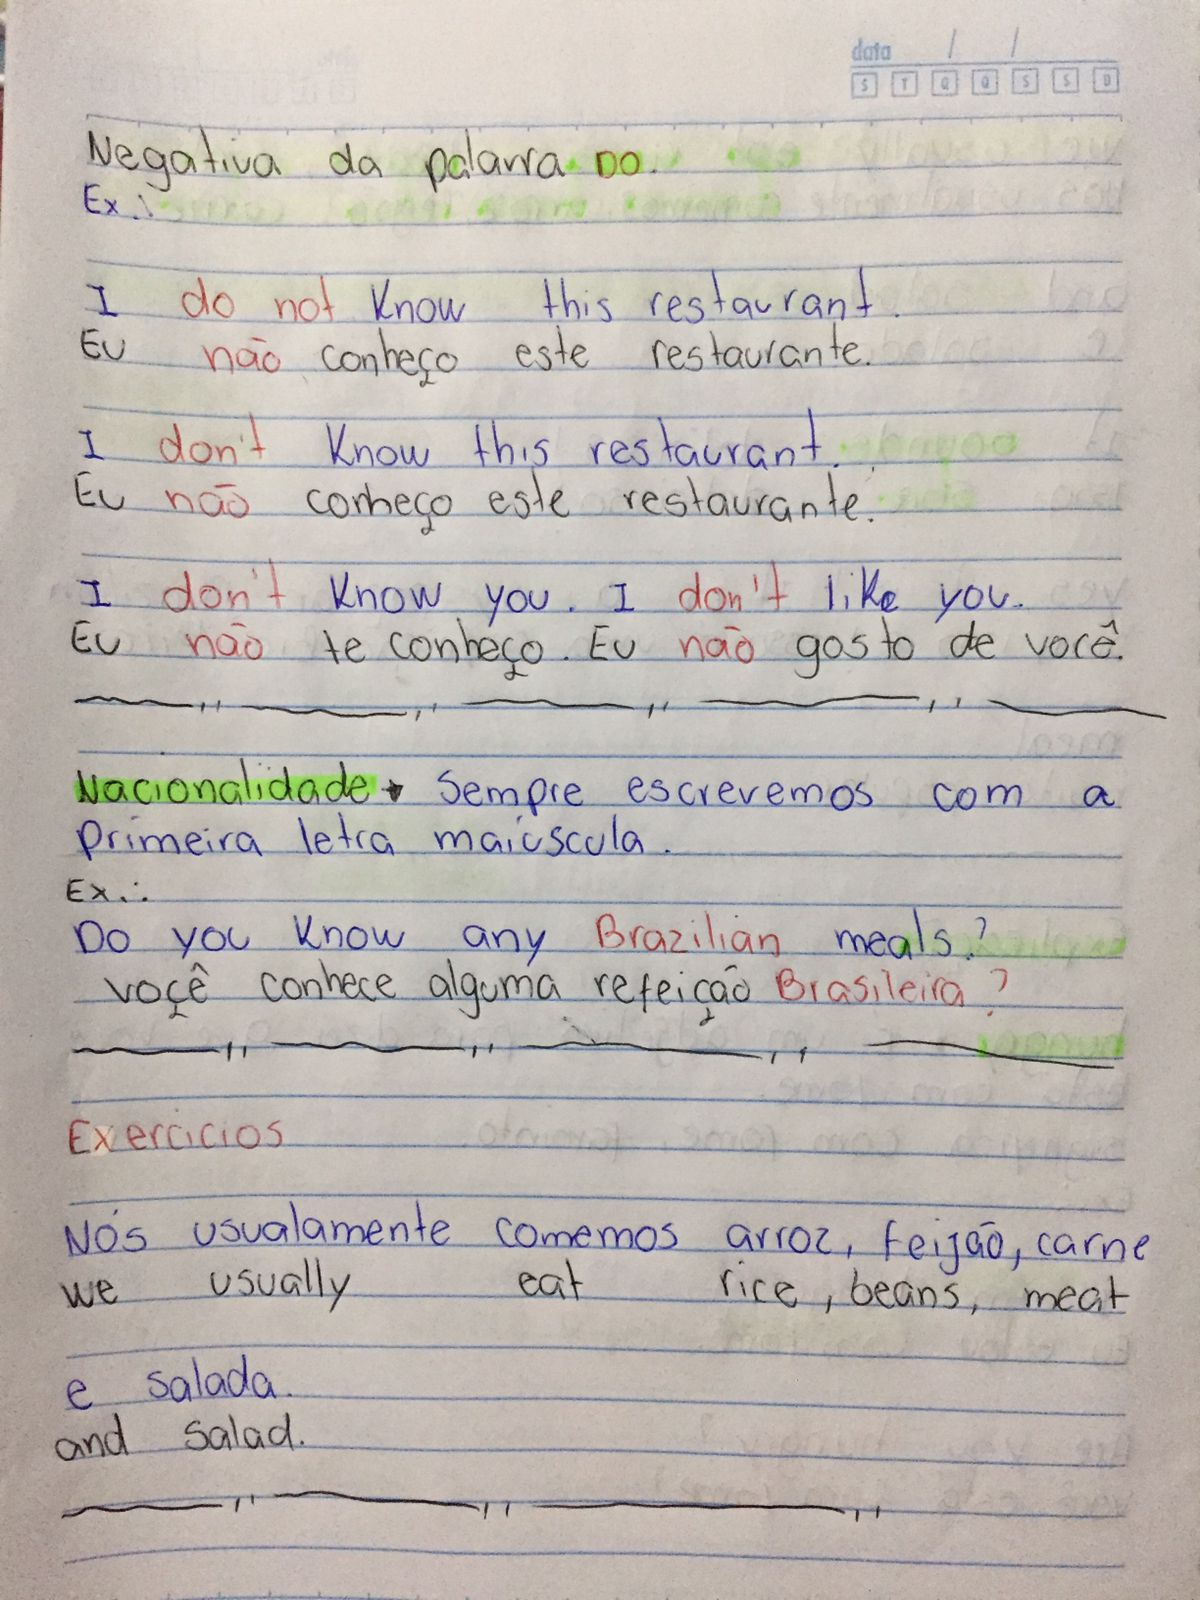 data / /
S T Q Q S S D
Negativa da palavra DO.
Ex.:
I do not know this restaurant.
Eu não conheço este restaurante.
I don't know this restaurant.
Eu não conheço este restaurante.
I don't know you. I don't like you.
Eu não te conheço. Eu não gosto de você.
Nacionalidade → Sempre escrevemos com a
primeira letra maiúscula.
Ex.:
Do you know any Brazilian meals?
Voçê conhece alguma refeição Brasileira?
Exercicios
Nós usualamente comemos arroz, feijão, carne
we usually eat rice, beans, meat
e salada.
and salad.